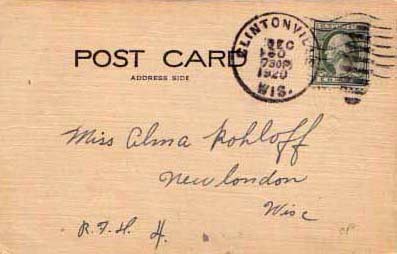 POST CARD
ADDRESS SIDE
CLINTONVILLE
DEC
730P
1920
WIS.
Miss Alma Kohloff
New London
Wisc
R. F. D. 4.